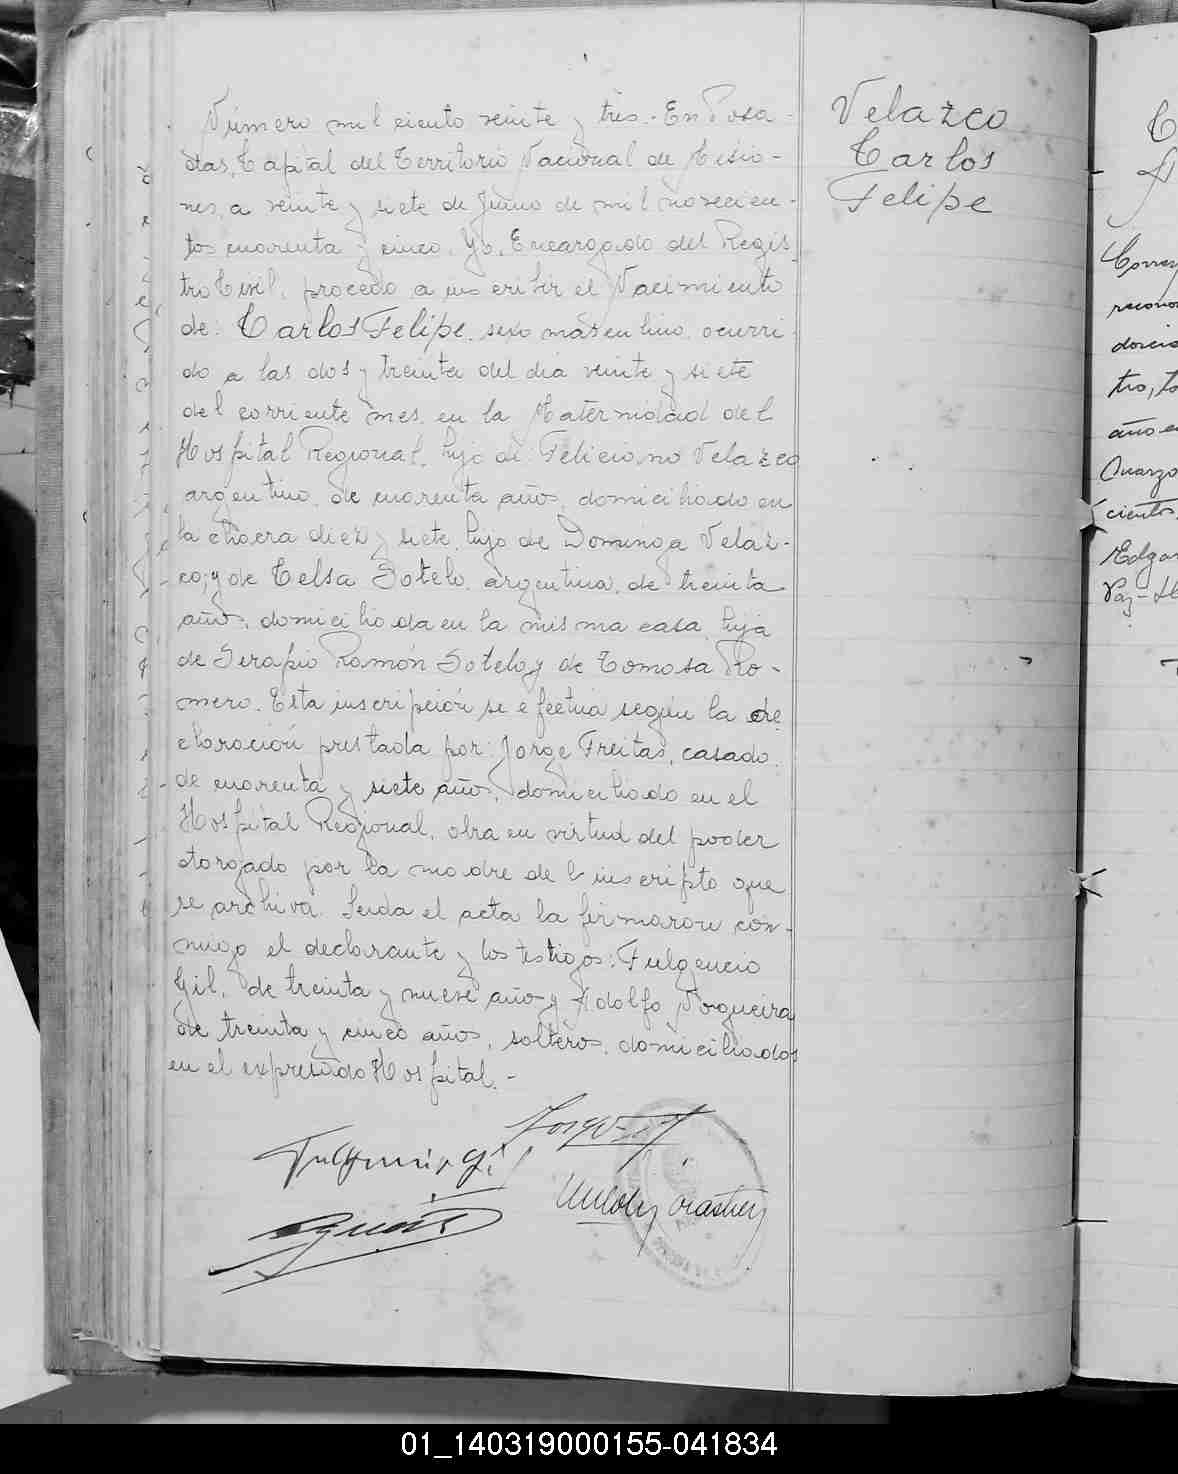 Número mil ciento veinte y tres.- En Posa-
das, Capital del Territorio Nacional de Misio-
nes, a veinte y siete de Junio de mil novecien-
tos cuarenta y cinco. Yo, Encargado del Regis-
tro Civil, procedo a inscribir el Nacimiento
de: Carlos Felipe, sexo masculino, ocurri-
do a las dos y treinta del día veinte y siete
del corriente mes, en la Maternidad del
Hospital Regional, hijo de: Feliciano Velazco
argentino, de cuarenta años, domiciliado en
la chacra diez y siete, hijo de Dominga Velaz-
co; y de Celsa Sotelo, argentina, de treinta
años, domiciliada en la misma casa, hija
de Serapio Ramón Sotelo y de Tomasa Ro-
mero. Esta inscripción se efectúa según la de
claración prestada por: Jorge Freitas, casado,
de cuarenta y siete años, domiciliado en el
Hospital Regional, obra en virtud del poder
otorgado por la madre del inscripto que
se archiva. Leida el acta la firmaron con-
migo el declarante y los testigos: Fulgencio
Gil, de treinta y nueve años y Adolfo Nogueira
de treinta y cinco años, solteros, domiciliados
en el expresado Hospital.-
Fulgencio Gil
Velazco
Carlos
Felipe
01_140319000155-041834